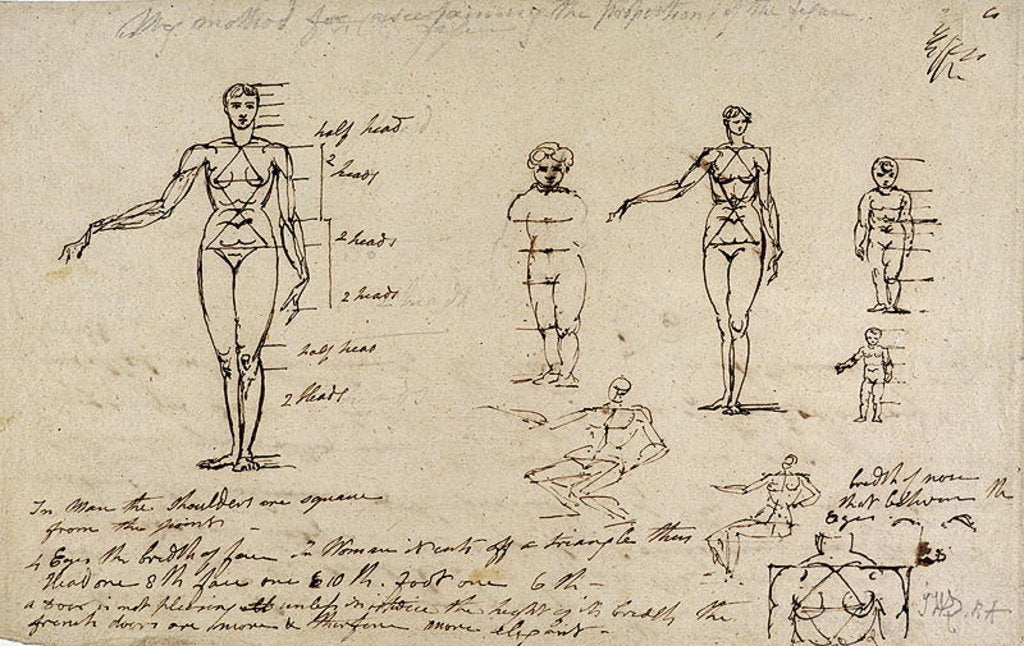 My method for ascertaining the proportions of the figure
half head
2 heads
2 heads
2 heads
half head
2 Heads
In Man the shoulders are square
from the point
4 Eyes the bredth of face in Woman it cuts off a triangle thus
Head one 8th face one 10th. Foot one 6th
a Door is not pleasing unless it is twice the height of its bredth the
french doors are more & therefore more elegant
bredth of nose
that between the
Eyes